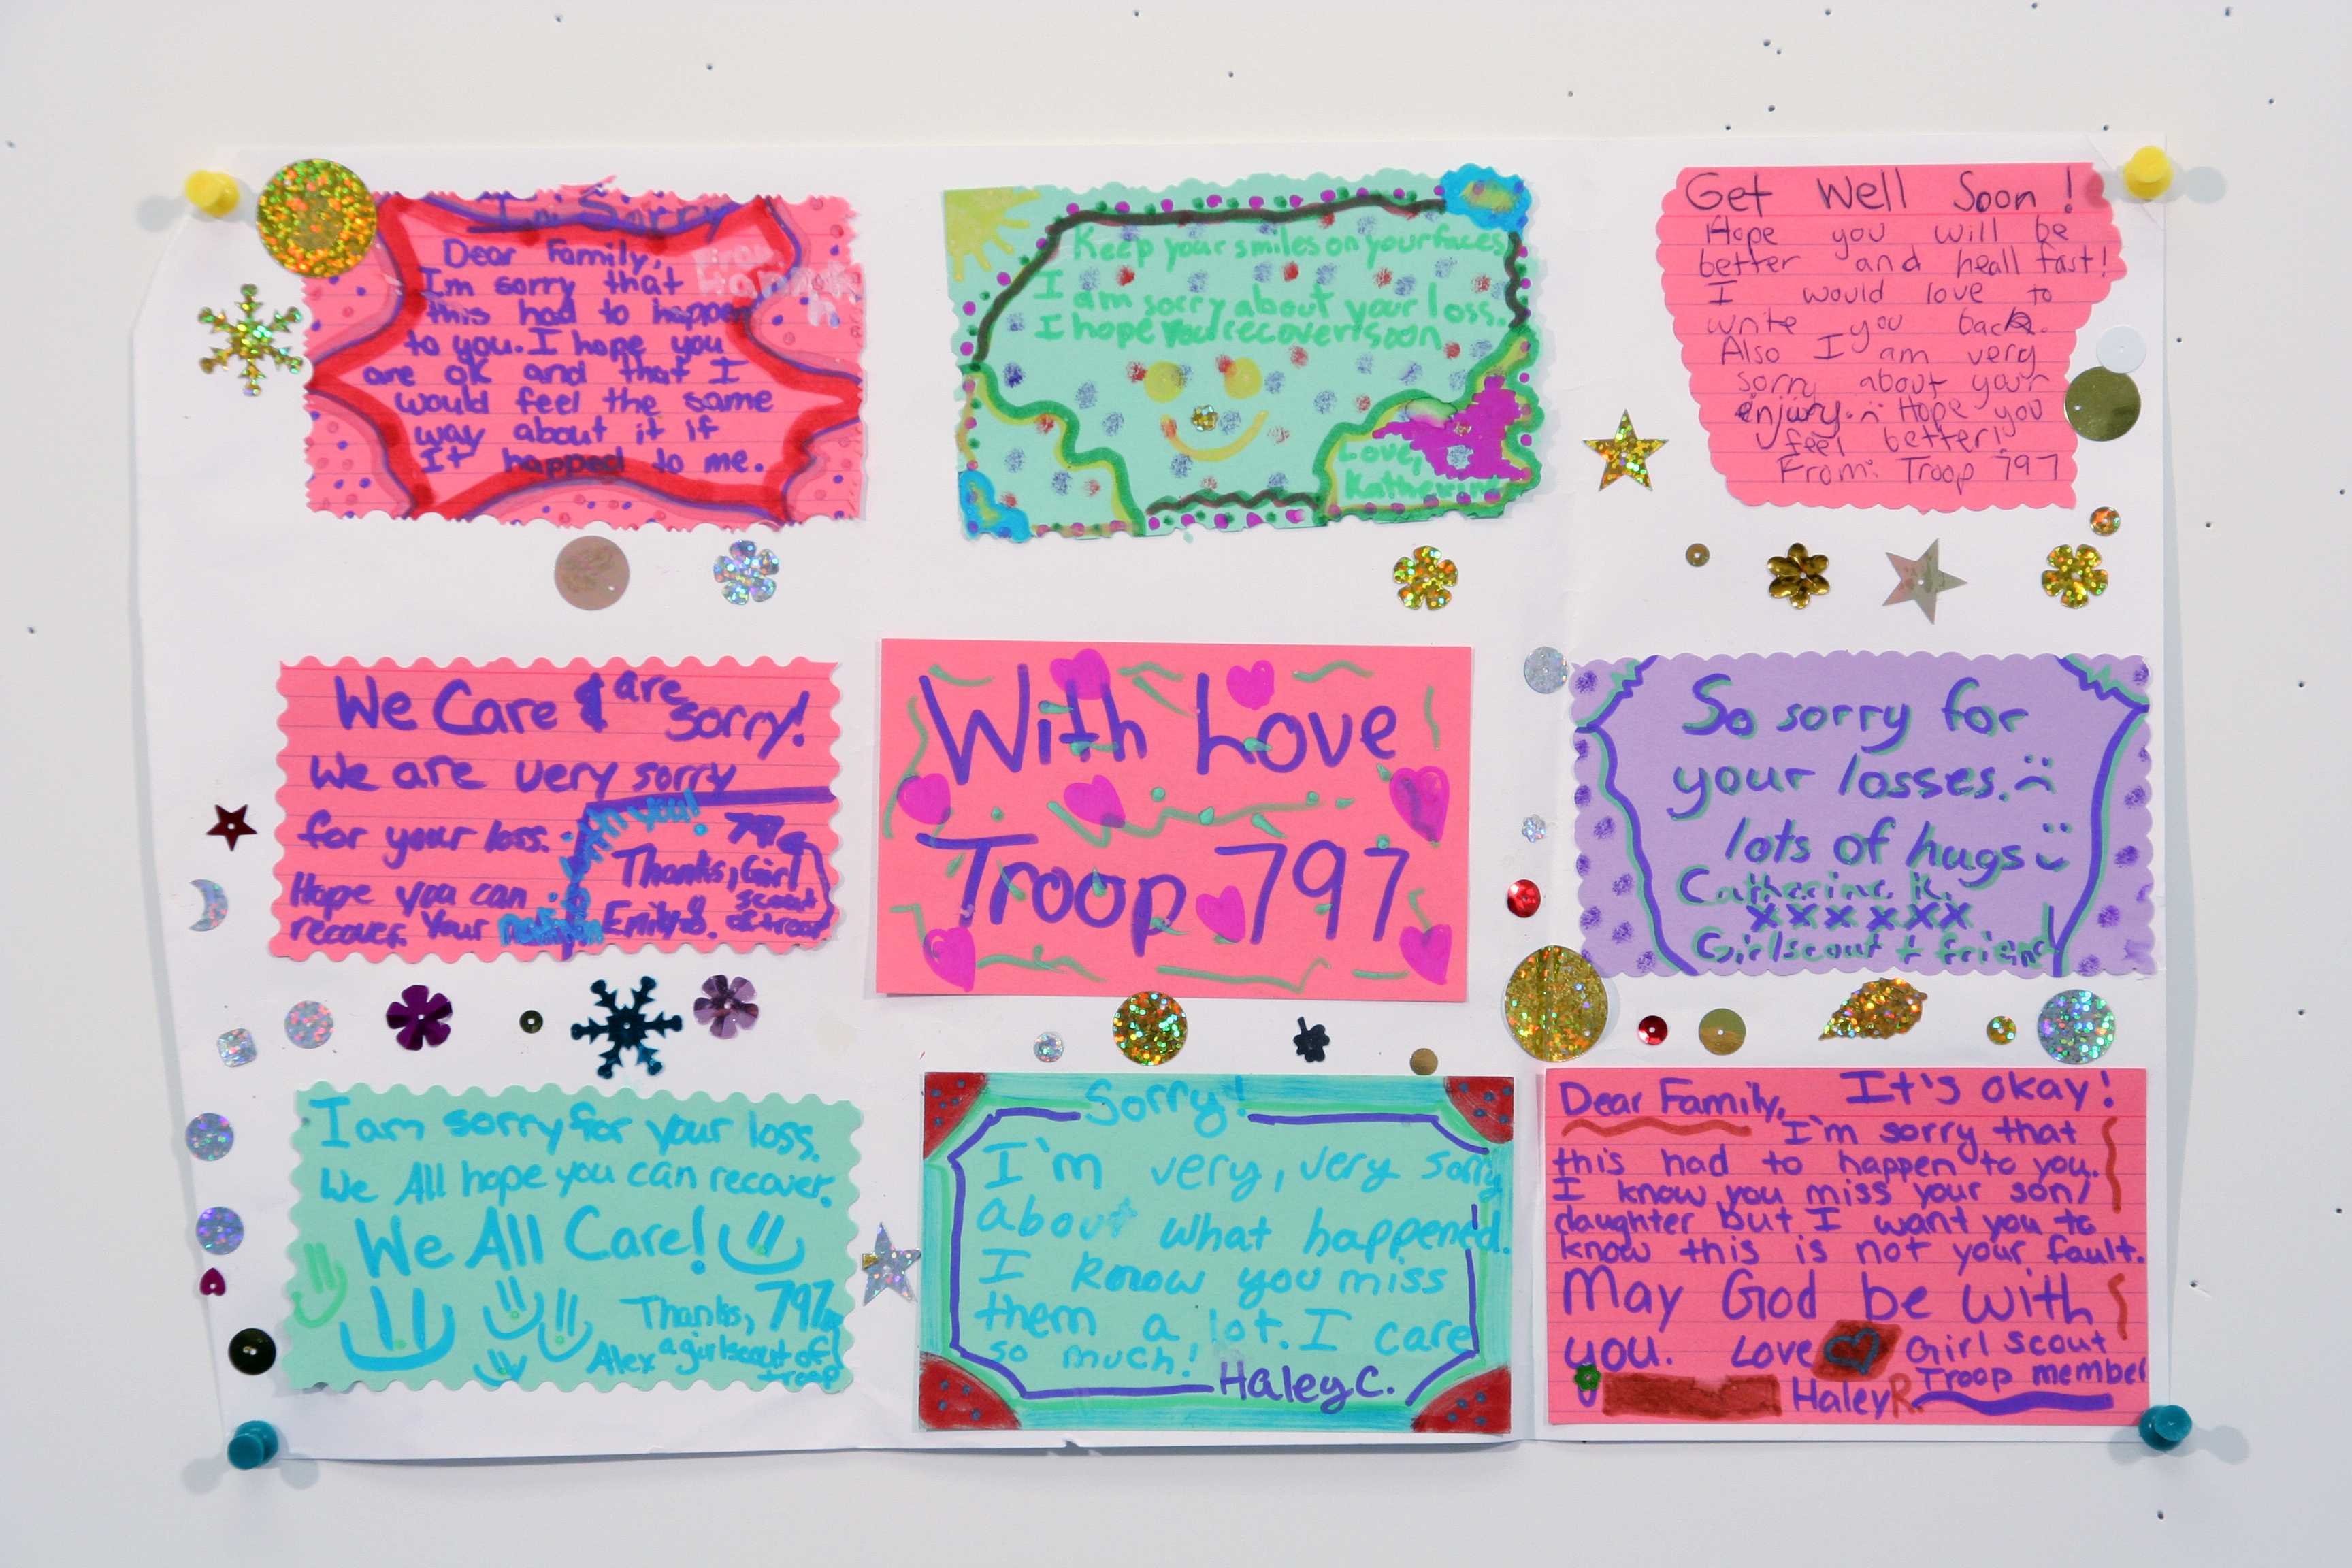 I'm Sorry
Dear Family,
Im sorry that
this had to happen
to you. I hope you
are ok and that I
would feel the same
way about it if
It happed to me.
From
Hannah
Keep your smiles on your faces
I am sorry about your loss.
I hope you recover soon
Love,
Katherine
Get Well Soon!
Hope you will be
better and heall fast!
I would love to
write you back.
Also I am very
sorry about your
enjury. Hope you
feel better!
From: Troop 797
We Care & are
sorry!
We are very sorry
for your loss.
Hope you can
recover. Your
with you!
Thanks, Girl
scout
of troop
797
Emily
With Love
Troop 797
So sorry for
your losses.
lots of hugs
Catherine K.
xxxxxx
Girlscout + friend
I am sorry for your loss.
We All hope you can recover.
We All Care!
Thanks, 797
Alex a girlscout of
troop
Sorry!
I'm very, very sorry
about what happened.
I know you miss
them a lot. I care
so much!
Haley C.
Dear Family, It's okay!
I'm sorry that
this had to happen to you.
I know you miss your son/
daughter but I want you to
know this is not your fault.
May God be with
you. Love Girl scout
Troop member
Haley R.